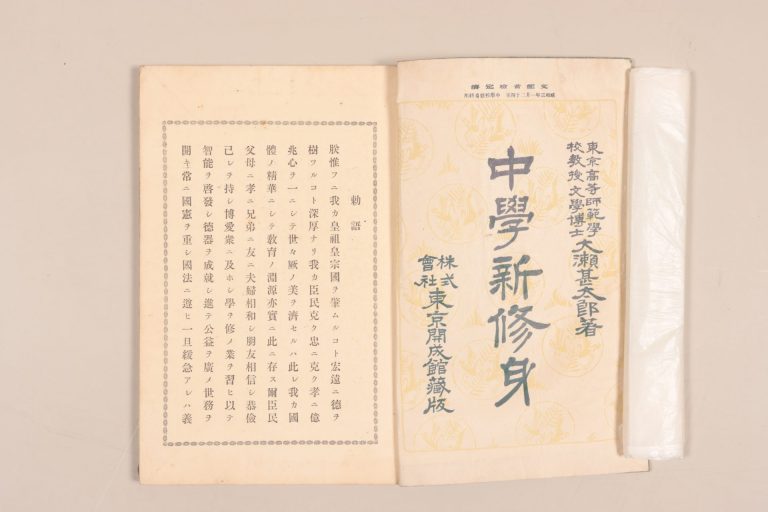 文部省檢定濟
東京高等師範學
校教授文學博士大瀨甚太郎著
中學新修身
株式
會社東京開成館藏版
勅語
朕惟フニ我カ皇祖皇宗國ヲ肇ムルコト宏遠ニ德ヲ
樹ツルコト深厚ナリ我カ臣民克ク忠ニ克ク孝ニ億
兆心ヲ一ニシテ世々厥ノ美ヲ濟セルハ此レ我カ國
體ノ精華ニシテ敎育ノ淵源亦實ニ此ニ存ス爾臣民
父母ニ孝ニ兄弟ニ友ニ夫婦相和シ朋友相信シ恭儉
己レヲ持シ博愛衆ニ及ホシ學ヲ修メ業ヲ習ヒ以テ
智能ヲ啓發シ德器ヲ成就シ進テ公益ヲ廣メ世務ヲ
開キ常ニ國憲ヲ重シ國法ニ遵ヒ一旦緩急アレハ義